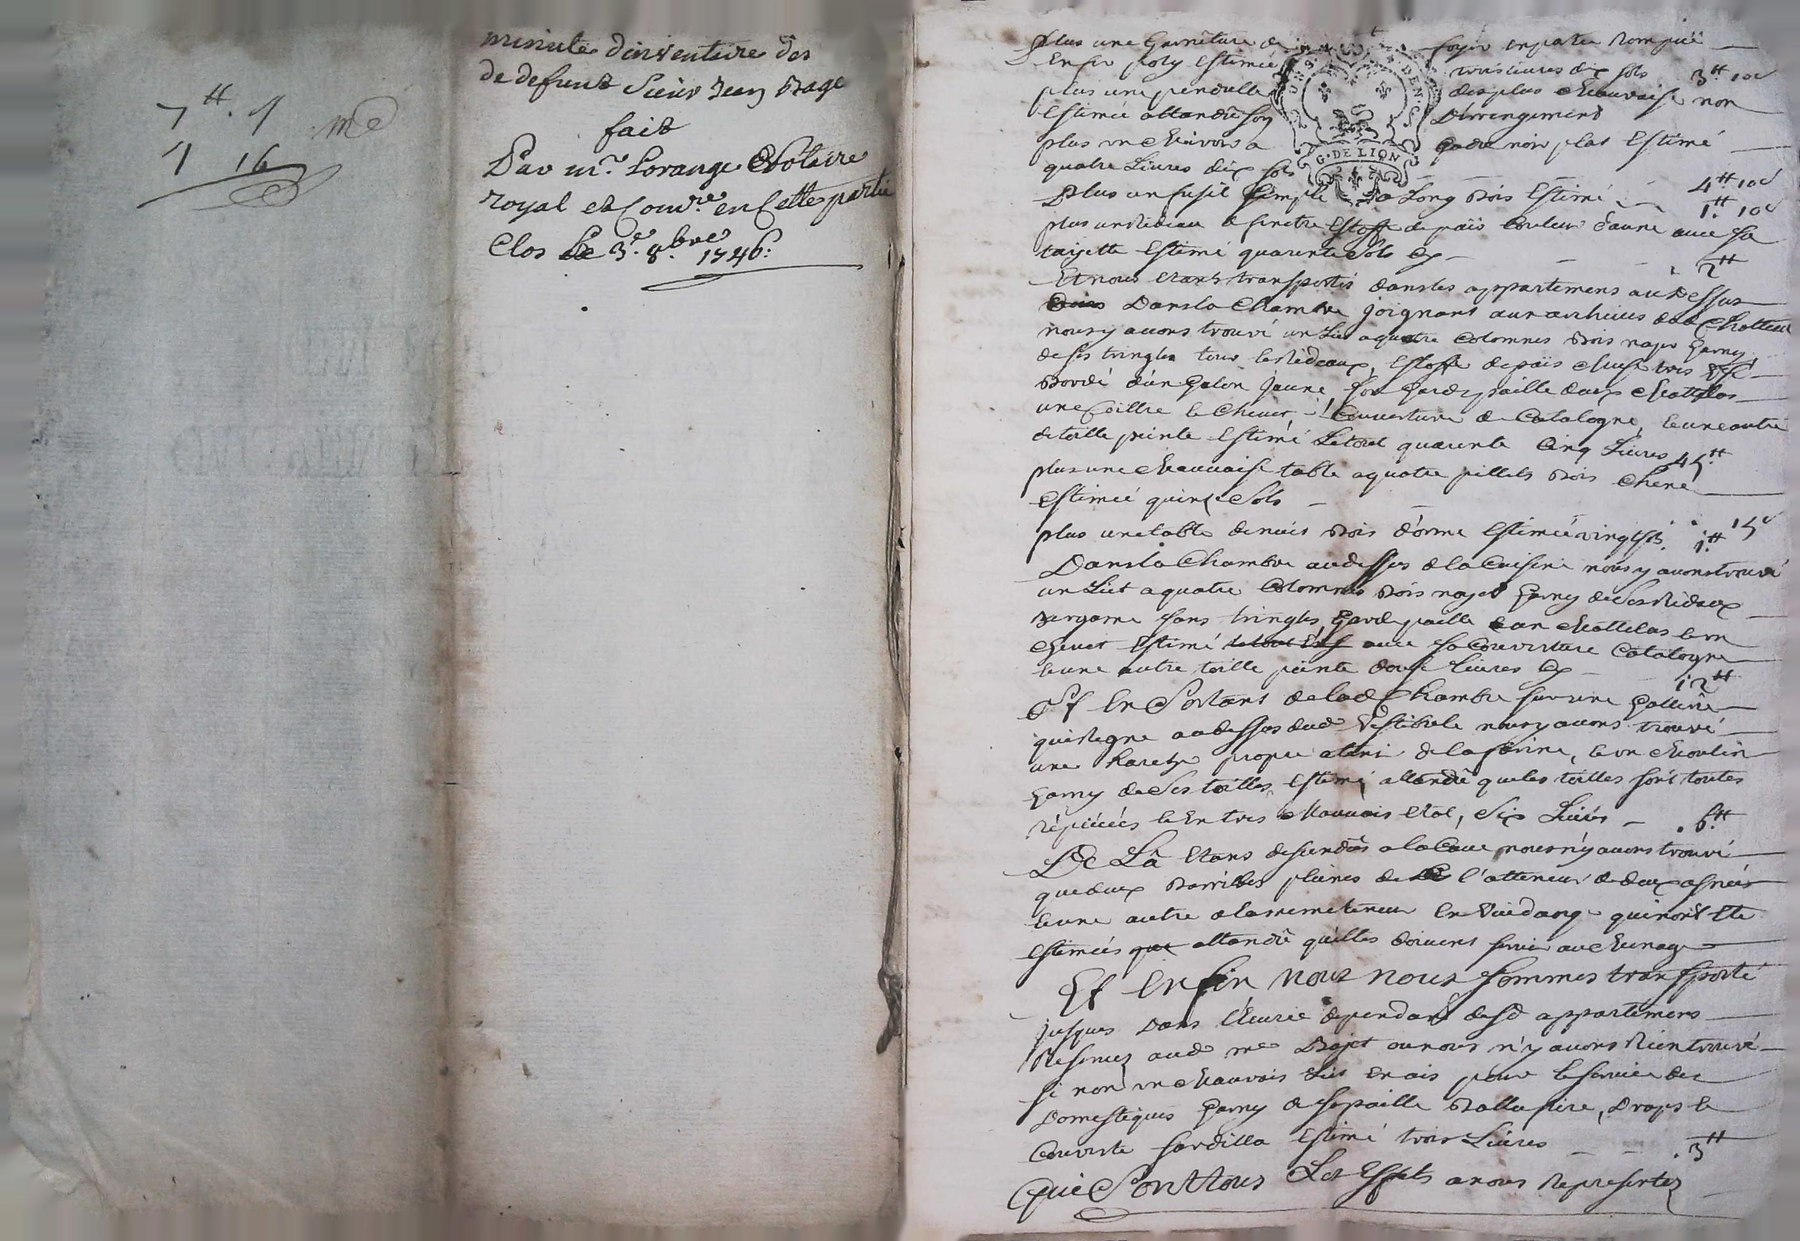 7ᵗᵗ. 1
me
1 16
minute dinventaire des
de defunt Sieur Jean Bage
fait
Par mʳ. Lorange Notaire
royal et Comʳᵉ. en Cette partie
Clos le 3ᵉ. 8ᵇʳᵉ. 1746.
plus une Garniture de foyer en partie Rompüe
En fer poly Estimée trois livres dix sols 3ᵗᵗ 10ˢ
plus une pendulle des plus Mauvaise non
Estimée attandu son Dérrengement
G. DE LION
plus un Miroirs a Cadre noir plat Estimé
quatre Livres dix sols 4ᵗᵗ 10ˢ
Plus un fusil Simple a Long Bois Estimé 1ᵗᵗ 10ˢ
plus un Rideau de fenetre Estoffe de païs Couleur d'aune avec sa
targette Estimé quarente Sols Cy 2ᵗᵗ
Et nous etants transportés dans les appartemens au Dessus
Dans la Chambre joignant aux archives dud. Chatteau
nous y avons trouvé un Lit a quatre Colomnes Bois noyer Garny
de ses tringles tour les Rideaux, Estoffe de païs tres Usé
Bordé d'un Galon jaune son Gardepaille deux Mattelas
une Coittre le Chevet Couverture de Catalogne, & une autre
de toille peinte Estimé Le tout quarente Cinq Livres 45ᵗᵗ
plus une Mauvaise table a quatre pilliés Bois Chene
Estimée quinze Sols 15ˢ
plus une table de nuit Bois d'orme Estimée vingt Sols 1ᵗᵗ
Dans la Chambre au dessus de la Cuisine nous y avons trouvé
un Lit a quatre Colomnes Bois noyer Garny de Ses Rideaux
Bergame sans tringles Gardepaille & un Mattelas & un
Chevet Estimé avec sa Couverture Catalogne
& une autre toille peinte douze livres Cy 12ᵗᵗ
Et En Sortant de lad. Chambre sur une Gallerie
qui Regne au dessus dud. Vestibule nous y avons trouvé
une propre a tenir de la farine, & un Moulin
Garny de Ses toilles Estimé, attandu que les toilles sont toutes
répiécées & En tres Mauvais Etat, Six Livres 6ᵗᵗ
De Là Etans descendûs a la Cave nous n'y avons trouvé
que deux Barrilles pleines de l'atteneur de deux asnées
& une autre de la meme teneur En Vüidange qui n'ont Eté
Estimées attandû qu'elles doivent servir au Menage
Et Enfin nous nous sommes transporté
jusques Dans l'Ecurie dependant desd. appartemens
Reservez aud. mᵉ Bajet ou nous n'y avons Rien trouvé
si non un Mauvais Lit En ais pour le service des
Domestiques Garny de sa paille Ballassiere, Draps &
Couverte Sardilla Estimé trois Livres 3ᵗᵗ
Qui Sont tous Les Effets a nous Representez